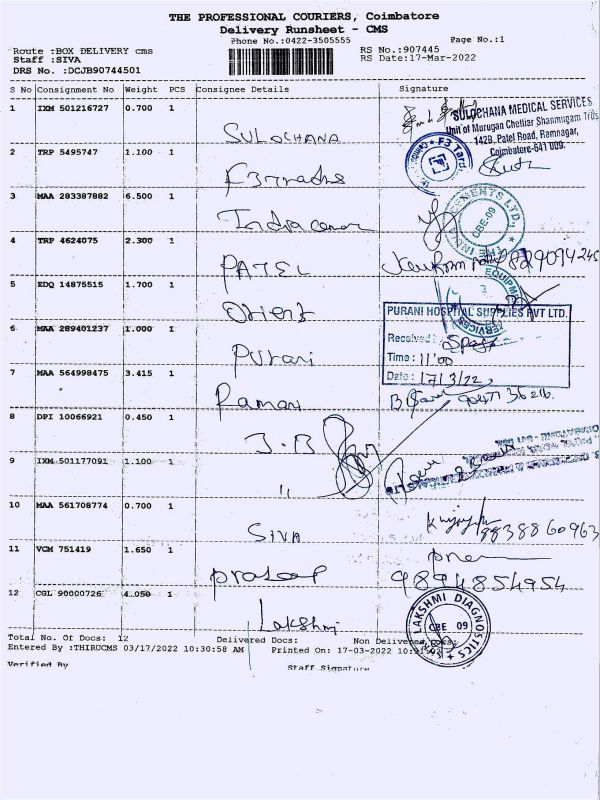 THE PROFESSIONAL COURIERS, Coimbatore
Delivery Runsheet - CMS
Phone No.:0422-3505555
Page No.:1
Route :BOX DELIVERY cms
RS No.:907445
Staff :SIVA
RS Date:17-Mar-2022
DRS No. :DCJB90744501
S No Consignment No Weight PCS Consignee Details Signature
1 IXM 501216727 0.700 1
SULOCHANA
SULOCHANA MEDICAL SERVICES
Unit of Murugan Chettiar Shanmugam Trus
142B, Patel Road, Ramnagar,
Coimbatore-641 009.
2 TRP 5495747 1.100 1
F3 Trade
3 MAA 283387882 6.500 1
India
CBE-09
4 TRP 4624075 2.300 1
PATEL
5 EDQ 14875515 1.700 1
Orient
EQUIPMENT
SERVICES
6 MAA 289401237 1.000 1
Purani
PURANI HOSPITAL SUPPLIES PVT LTD.
Received :
Time : 11'00
Date : 17/3/22,
7 MAA 564998475 3.415 1
Raman
8 DPI 10066921 0.450 1
J.B
9 IXM 501177091 1.100 1
"
10 MAA 561708774 0.700 1
SIVA
9838860963
11 VCM 751419 1.650 1
prasad
9894854954
12 CGL 90000726 4.050 1
Lakshmi
LAKSHMI DIAGNOSTICS
CBE 09
Total No. Of Docs: 12 Delivered Docs: Non Delivered Docs:
Entered By :THIRUCMS 03/17/2022 10:30:58 AM Printed On: 17-03-2022
Verified By Staff Signature